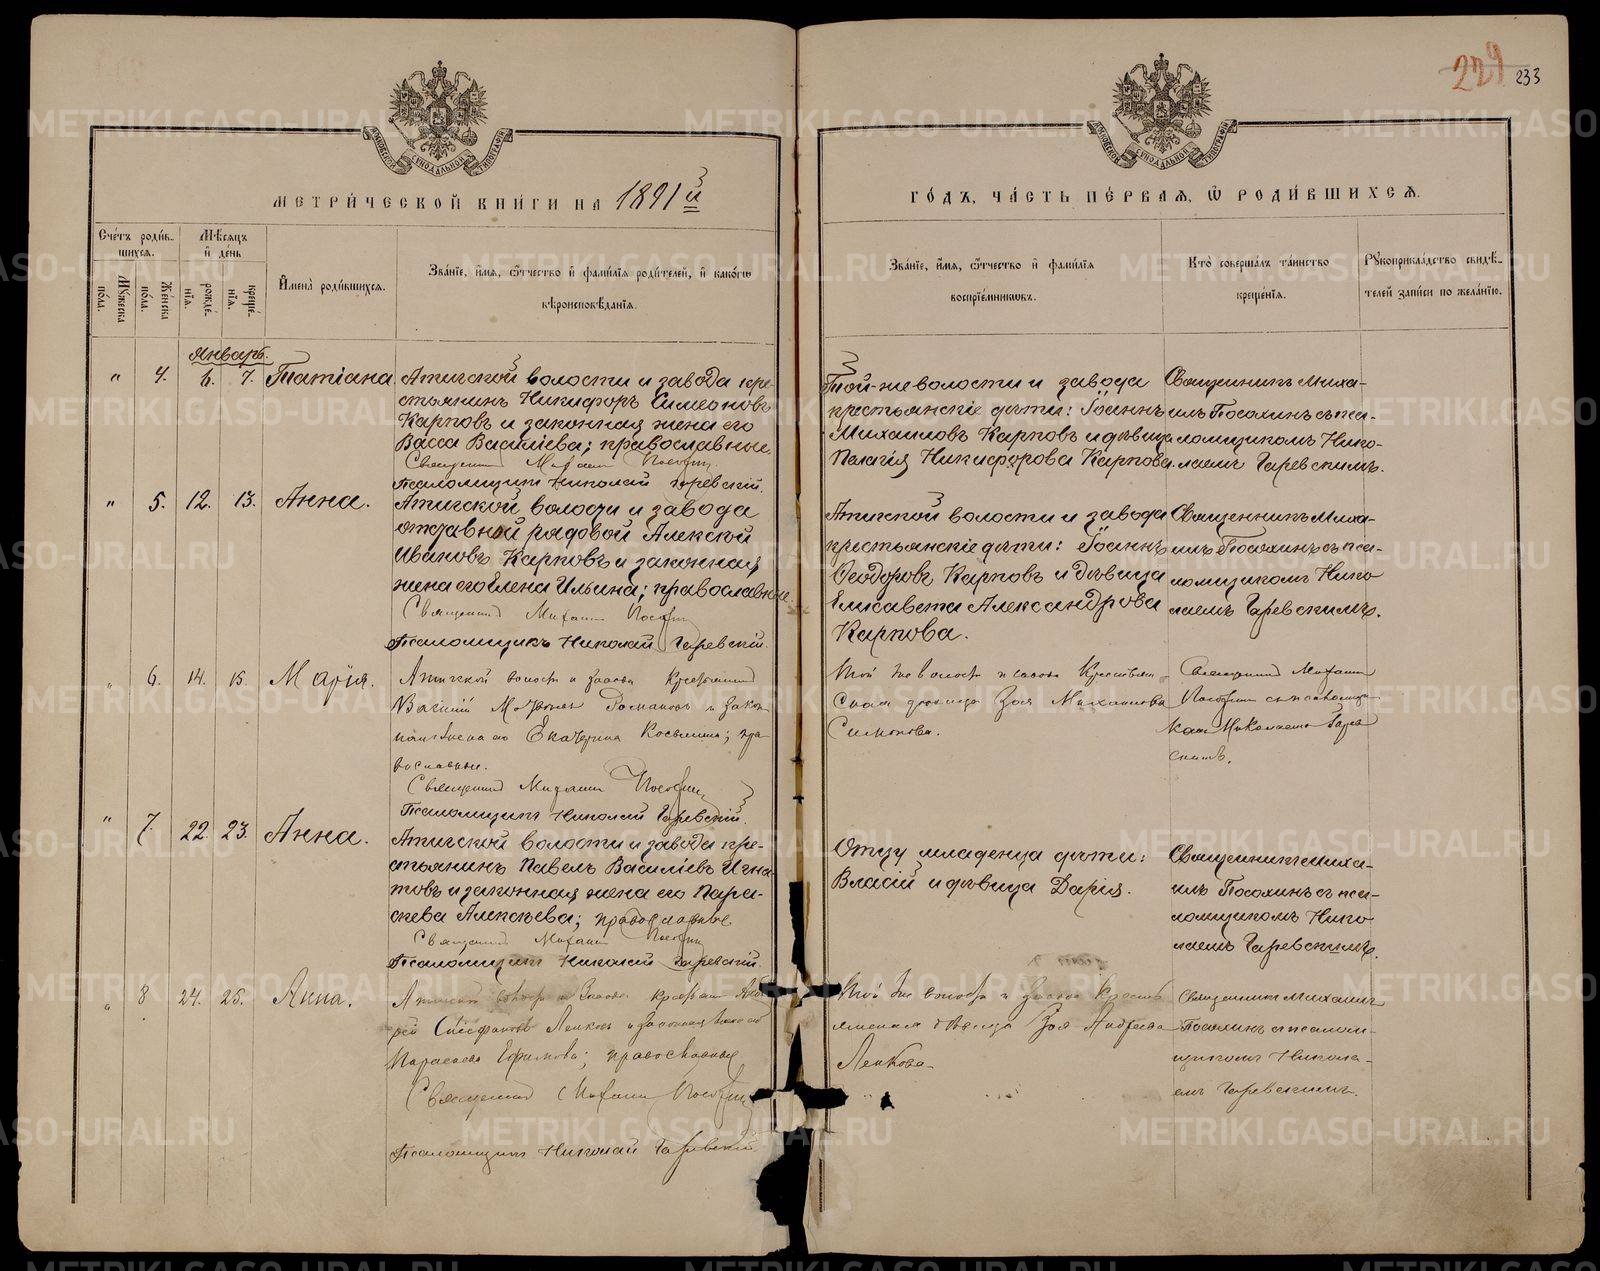 229 233
МЕТРИ́ЧЕСКОЙ КНИ́ГИ НА 1891й
ГО́ДЪ, ЧА́СТЬ ПЕ́РВАЯ, Ѡ҆ РОДИ́ВШИХСЯ.
Сче́тъ роди́в-
шихся.
Мѣ́сяцъ
и҆ де́нь
Му́жеска
по́ла.
Же́нска
по́ла.
рожде́-
нїя.
креще́-
нїя.
И҆мена̀ роди́вшихся.
Зва́нїе, и҆́мя, ѻ҆́тчество и҆ фами́лїя роди́телей, и҆ како́гѡ
вѣроисповѣ́данїя.
Зва́нїе, и҆́мя, ѻ҆́тчество и҆ фами́лїя
воспрїе́мникѡвъ.
Кто̀ соверша́лъ та́инство
креще́нїя.
Рꙋкоприкла́дство свидѣ́-
телей за́писи по жела́нїю.
Январь.
" 4. 6. 7. Татіана
Атигской волости и завода кре-
стьянинъ Никифоръ Симеоновъ
Карповъ и законная жена его
Васса Василіева; православные.
Священникъ Михаилъ Посохинъ
Псаломщикъ Николай Гаревскій.
Той-же волости и завода
крестьянскіе дѣти: Іоаннъ
Михаиловъ Карповъ и дѣвица
Пелагія Никифорова Карпова.
Священникъ Миха-
илъ Посохинъ съ пса-
ломщикомъ Нико-
лаемъ Гаревскимъ.
" 5. 12. 13. Анна.
Атигской волости и завода
отставной рядовой Алексѣй
Ивановъ Карповъ и законная
жена его Елена Ильина; православные.
Священникъ Михаилъ Посохинъ
Псаломщикъ Николай Гаревскій.
Атигской волости и завода
крестьянскіе дѣти: Іоаннъ
Ѳеодоровъ Карповъ и дѣвица
Елисавета Александрова
Карпова.
Священникъ Миха-
илъ Посохинъ съ пса-
ломщикомъ Нико
лаемъ Гаревскимъ.
" 6. 14. 15. Марія.
Атигской волости и завода Крестьянинъ
Василій Романовъ и закон
ная жена его Екатерина Косьмина; пра
вославные.
Священникъ Михаилъ Посохинъ
Псаломщикъ Николай Гаревскій.
Той же волости и завода Крестьян
ская дѣвица Зоя Михаилова
Симонова.
Священникъ Михаилъ
Посохинъ съ псаломщи
комъ Николаемъ Гарев
скимъ.
" 7. 22. 23. Анна.
Атигской волости и завода кре-
стьянинъ Павелъ Василіевъ Игна
товъ и законная жена его Пара-
скева Алексѣева; православные
Священникъ Михаилъ Посохинъ
Псаломщикъ Николай Гаревскій.
Отцу младенца дѣти:
Власій и дѣвица Дарія.
Священникъ Миха-
илъ Посохинъ съ пса-
ломщикомъ Нико
лаемъ Гаревскимъ.
" 8 24. 25. Анна.
Атигской волости и Завода крестьянинъ Анд
рей Стефановъ Лепковъ и Законная жена его
Параскева Ефимова; православные
Священникъ Михаилъ Посохинъ
Псаломщикъ Николай Гаревскій.
Той же волости и завода Кресть
янская дѣвица Зоя Андреева
Лепкова.
Священникъ Михаилъ
Посохинъ съ псалом-
щикомъ Никола-
емъ Гаревскимъ.